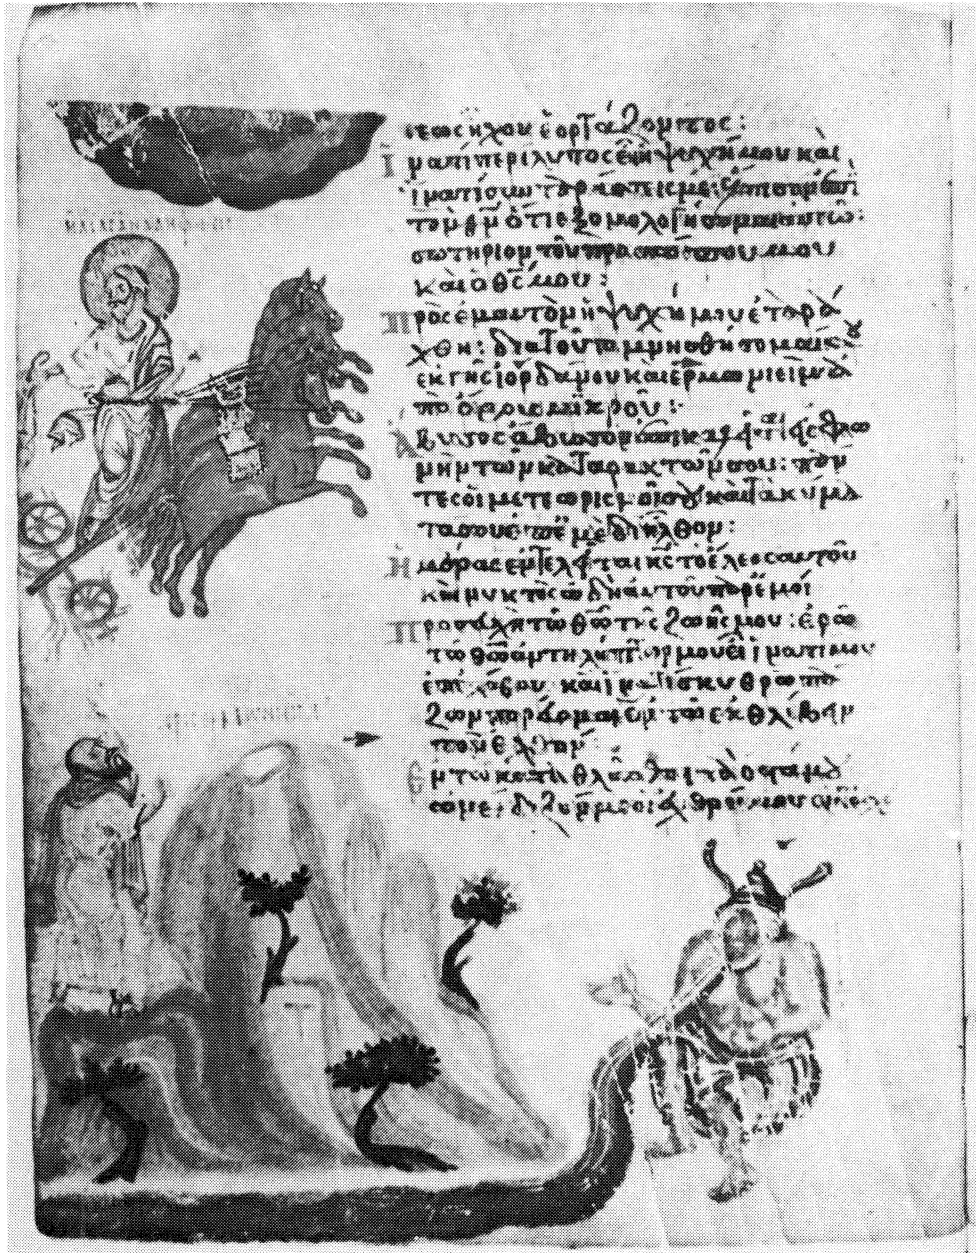 τεωσ ἤχου ἑορτάζοντος:
Ἱνατί περίλυπος εἶ ἡ ψυχή μου καὶ
ἱνατί συνταράσσεις με; ἔλπισον ἐπὶ
τὸν θν ὅτι ἐξομολογήσομαι αὐτῶ:
σωτήριον τοῦ προσώπου μου
καὶ ὁ θς μου:
Πρὸς ἐμαυτὸν ἡ ψυχή μου ἐταρά
χθη: διὰ τοῦτο μνησθήσομαί σου
ἐκ γῆς ἰορδάνου καὶ ἑρμωνιεὶμ ἀ
πὸ ὄρους μικροῦ:
Ἄβυσσος ἄβυσσον ἐπικαλεῖται εἰς φω
νὴν τῶν καταρακτῶν σου: πάν
τες οἱ μετεωρισμοί σου καὶ τὰ κύμα
τά σου ἐπ' ἐμὲ διῆλθον:
Ἡμέρας ἐντελεῖται κς τὸ ἔλεος αὐτοῦ
καὶ νυκτὸς ὠδὴ αὐτοῦ παρ' ἐμοί
Προσευχὴ τῶ θῶ τῆς ζωῆς μου: ἐρῶ
τῶ θῶ ἀντιλήπτωρ μου εἶ ἱνατί μου
ἐπελάθου καὶ ἱνατί σκυθρωπά
ζων πορεύομαι ἐν τῶ ἐκθλίβειν
τὸν ἐχθρόν
Ἐν τῶ καταθλᾶσθαι τὰ ὀστᾶ μου